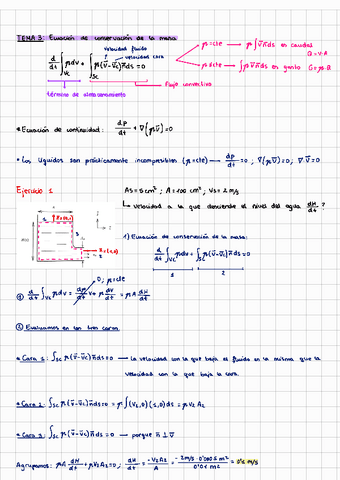 TEMA 3: Ecuación de conservación de la masa
velocidad fluido
velocidad cara
d/dt ∫VC ρdv + ∫SC ρ(v̄-v̄c)n̄ds = 0
ρ=cte → ρ∫v̄n̄ds en caudal
Q=V·A
ρ≠cte → ∫ρv̄n̄ds en gasto G=ρ·Q
flujo convectivo
término de almacenamiento
* Ecuación de continuidad: dρ/dt + ∇(ρv̄)=0
* Los líquidos son prácticamente incompresibles (ρ=cte) → dρ/dt=0; ∇(ρv̄)=0; ∇·v̄=0
Ejercicio 1
As=5cm²; A=100cm²; Vs=2m/s
↳ velocidad a la que desciende el nivel del agua dH/dt?
1) Ecuación de conservación de la masa:
d/dt ∫VC ρdv + ∫SC ρ(v̄-v̄c)n̄ds=0
1 2
0; ρ=cte
① d/dt ∫VC ρdv = dρ/dt V + ρ dV/dt = ρA dH/dt
② Evaluamos en las tres caras
* Cara 1: ∫SC ρ(v̄-v̄c)n̄ds=0 → la velocidad con la que baja el fluido es la misma que la
velocidad con la que baja la cara.
* Cara 2: ∫SC ρ(v̄-v̄c)n̄ds=ρ∫(V2,0)(1,0)ds = ρV2A2
* Cara 3: ∫SC ρ(v̄-v̄c)n̄ds=0 → porque n̄⊥v̄
Agrupamos: ρA dH/dt + ρV2A2=0; dH/dt = -V2A2/A = -2m/s·0'0005m²/0'01m² = 0'1 m/s